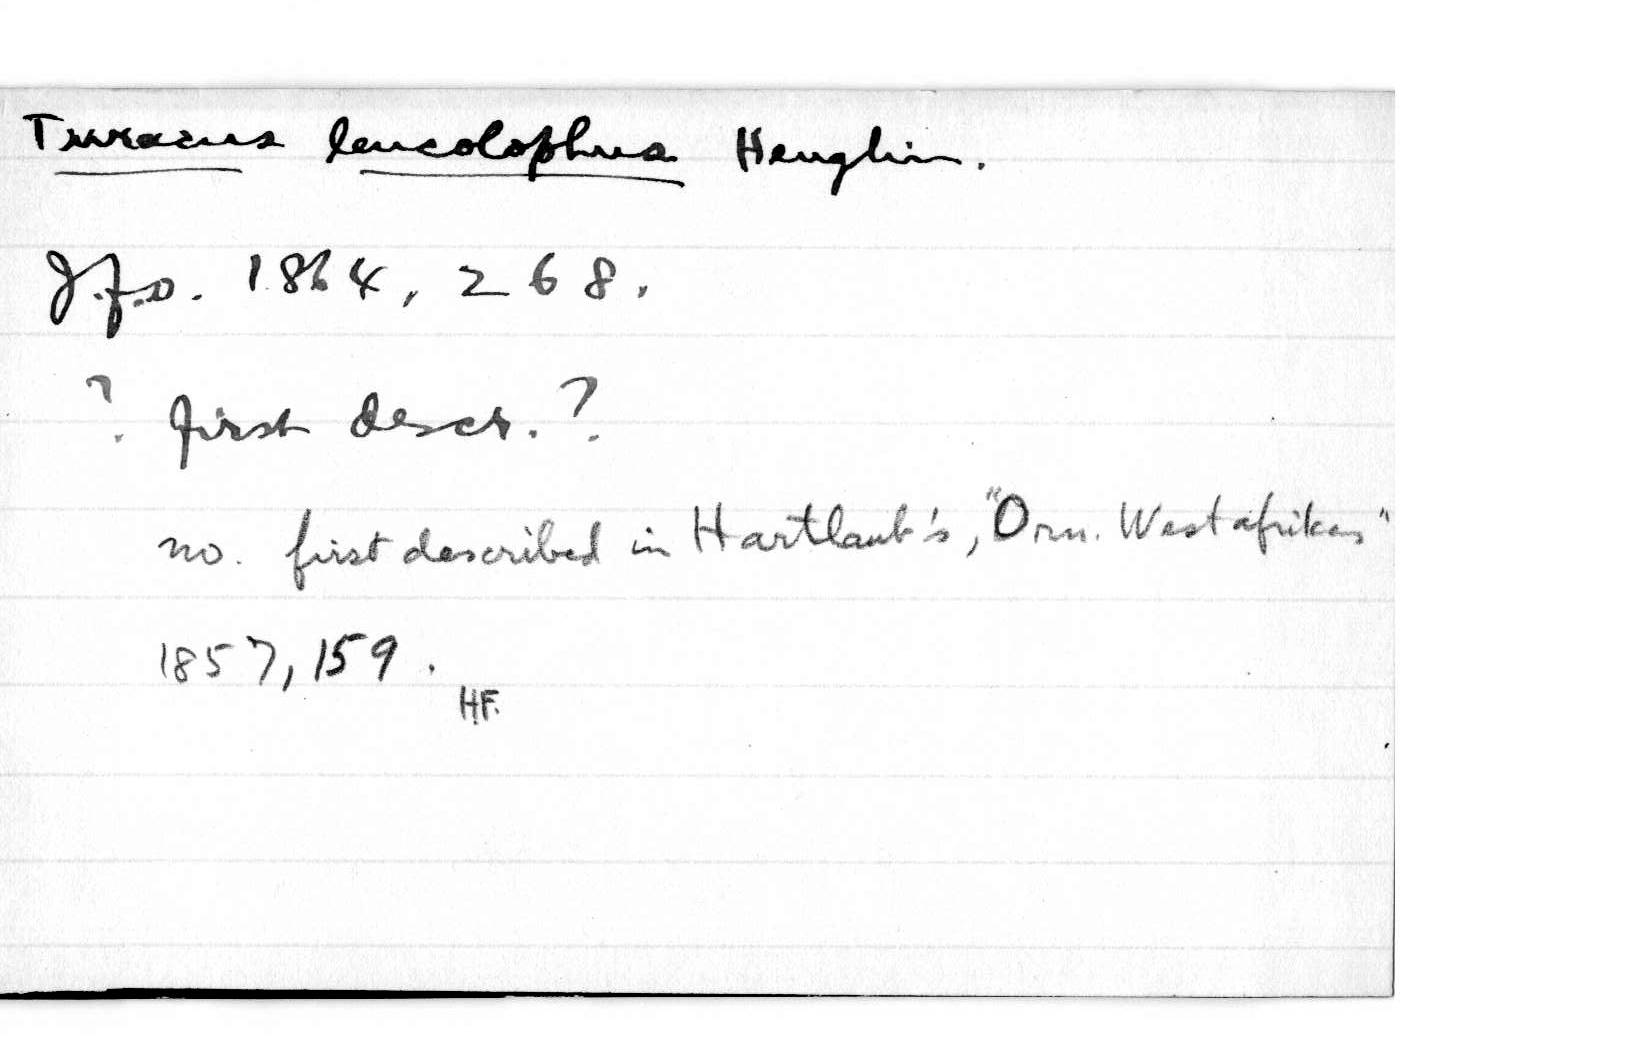 Turacus leucolophus Heuglin.
J.f.o. 1864, 268.
? first descr. ?
no. first described in Hartlaub's, "Orn. Westafrikas"
1857, 159.
HF.